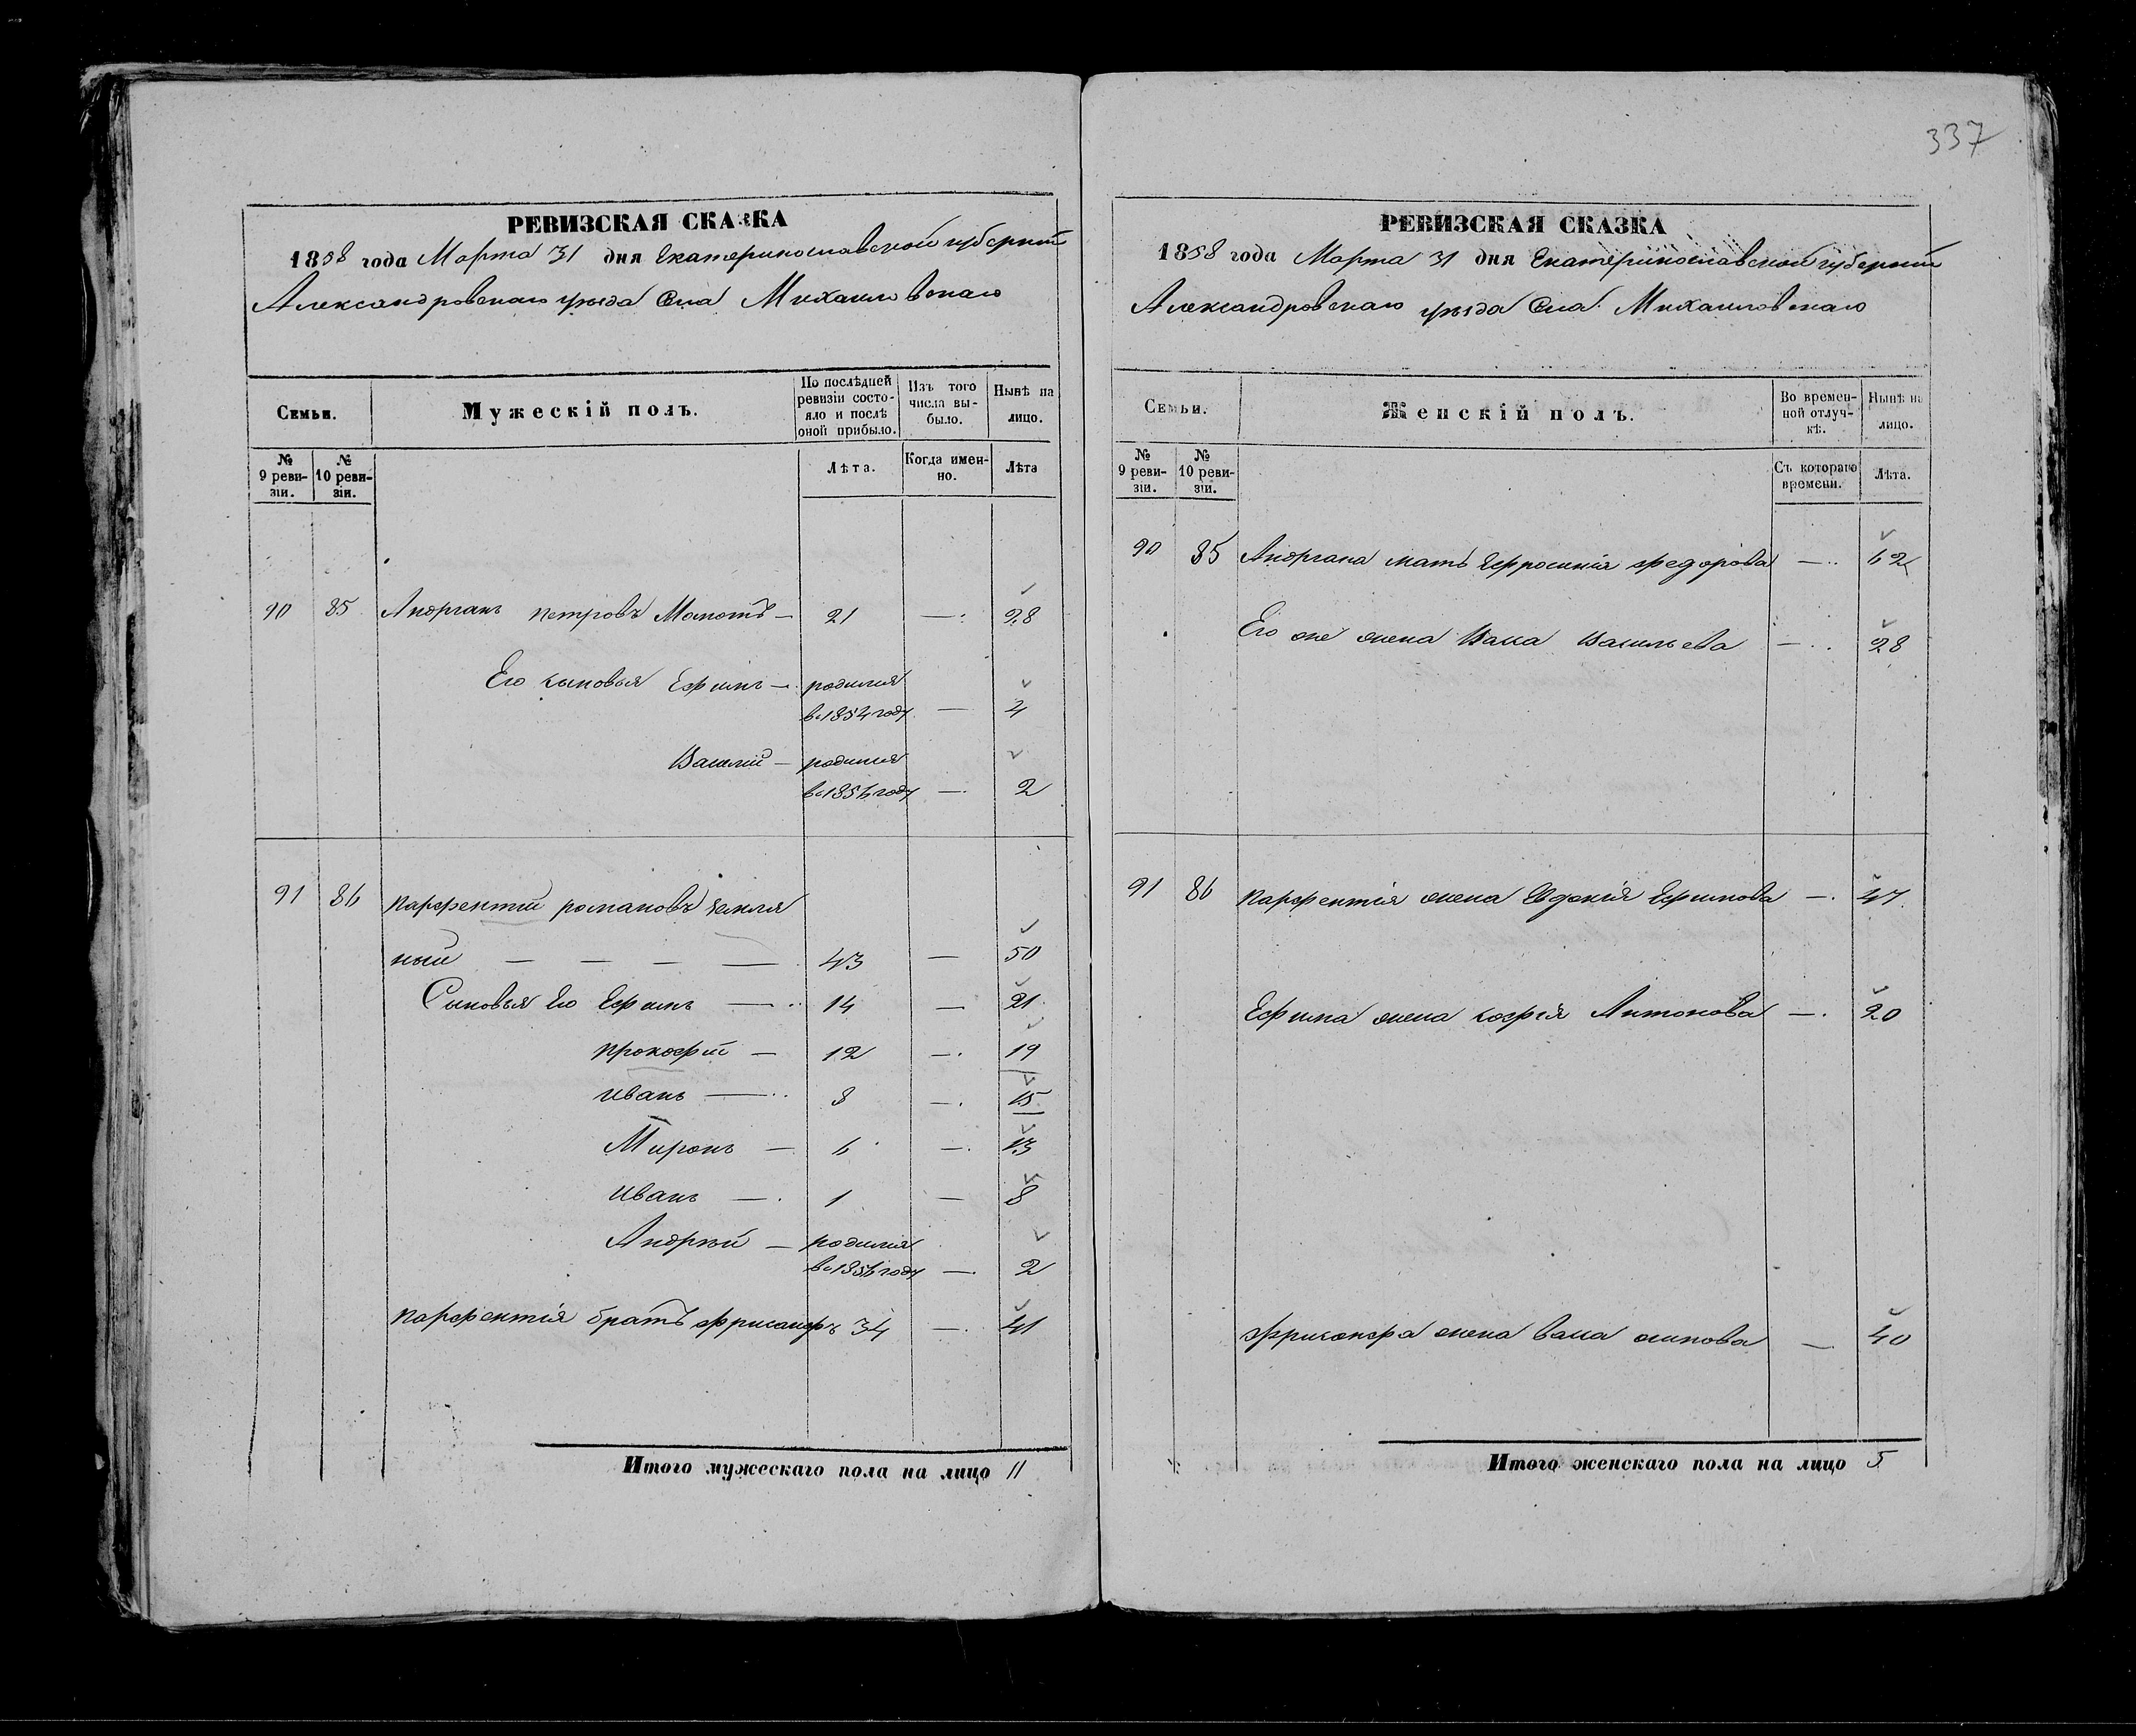 337
РЕВИЗСКАЯ СКАЗКА
1858 года Марта 31 дня Екатеринославской губерніи
Александровскаго уѣзда Села Михаиловскаго
Семьи.
Мужескій полъ.
По послѣдней ревизіи состояло и послѣ оной прибыло.
Изъ того числа выбыло.
Нынѣ на лицо.
№ 9 ревизіи.
№ 10 ревизіи.
Лѣта.
Когда именно.
Лѣта
90 85 Андріанъ Петровъ — 21 — 28
Его сыновья Ефимъ — родился
въ 1854 году — 4
Василій — родился
въ 1856 году — 2
91 86 Парфентій Романовъ Земля
ный — — — — 43 — 50
Сыновья Его Ефимъ — 14 — 21
Прокофій — 12 — 19
Иванъ — 8 — 15
Миронъ — 6 — 13
Иванъ — 1 — 8
Андрей — родился
въ 1856 году — 2
Парфентія братъ 34 — 41
Итого мужескаго пола на лицо 11
РЕВИЗСКАЯ СКАЗКА
1858 года Марта 31 дня Екатеринославской губерніи
Александровскаго уѣзда Села Михаиловскаго
Семьи.
Женскій полъ.
Во временной отлучкѣ.
Нынѣ на лицо.
№ 9 ревизіи.
№ 10 ревизіи.
Съ котораго времени.
Лѣта.
90 85 Андріана мать Ефросинія Федорова — 62
Его же жена Васа Васильева — 28
91 86 Парфентія жена Евдокія Ефимова — 47
Ефима жена Софія Антонова — 20
жена Васа Осипова — 40
Итого женскаго пола на лицо 5